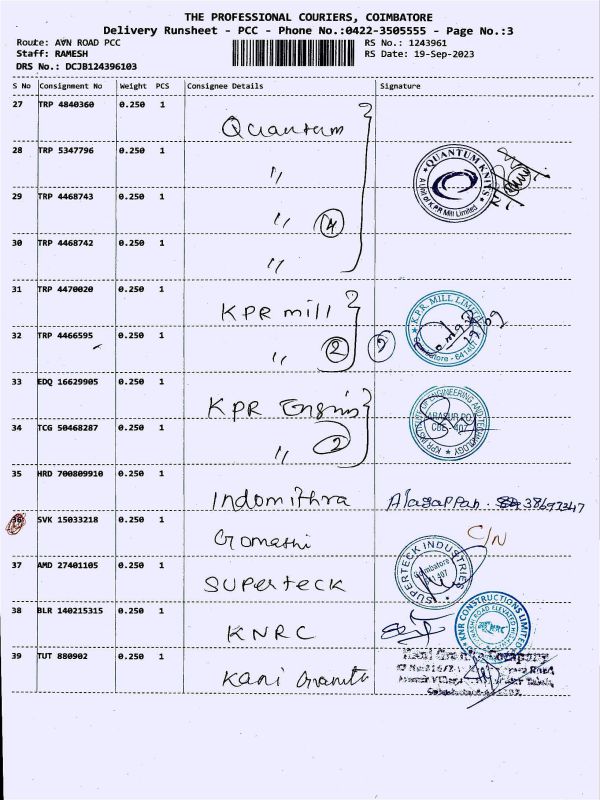 THE PROFESSIONAL COURIERS, COIMBATORE
Delivery Runsheet - PCC - Phone No.:0422-3505555 - Page No.:3
Route: AVN ROAD PCC RS No.: 1243961
Staff: RAMESH RS Date: 19-Sep-2023
DRS No.: DCJB124396103
S No Consignment No Weight PCS Consignee Details Signature
27 TRP 4840360 0.250 1 Quantum
28 TRP 5347796 0.250 1 "
QUANTUM KNITS
A Unit of K.P.R Mill Limited
29 TRP 4468743 0.250 1 " 4
30 TRP 4468742 0.250 1 "
31 TRP 4470020 0.250 1 KPR mill
K.P.R. MILL LIMITED
Coimbatore - 641407
32 TRP 4466595 0.250 1 " 2
33 EDQ 16629905 0.250 1 KPR Engin
KPR INSTITUTE OF ENGINEERING AND TECHNOLOGY
ARASUR PO
CBE - 407
34 TCG 50468287 0.250 1 " 2
35 HRD 700809910 0.250 1 Indomithra Alagappan
36 SVK 15033218 0.250 1 Gomathi C/N
37 AMD 27401105 0.250 1 SUPERTECK
SUPERTECK INDUSTRIES
Coimbatore
641 407
38 BLR 140215315 0.250 1 KNRC
KNR CONSTRUCTIONS LIMITED
KNRC
39 TUT 880902 0.250 1 Kani Granite
Kani Granite Company